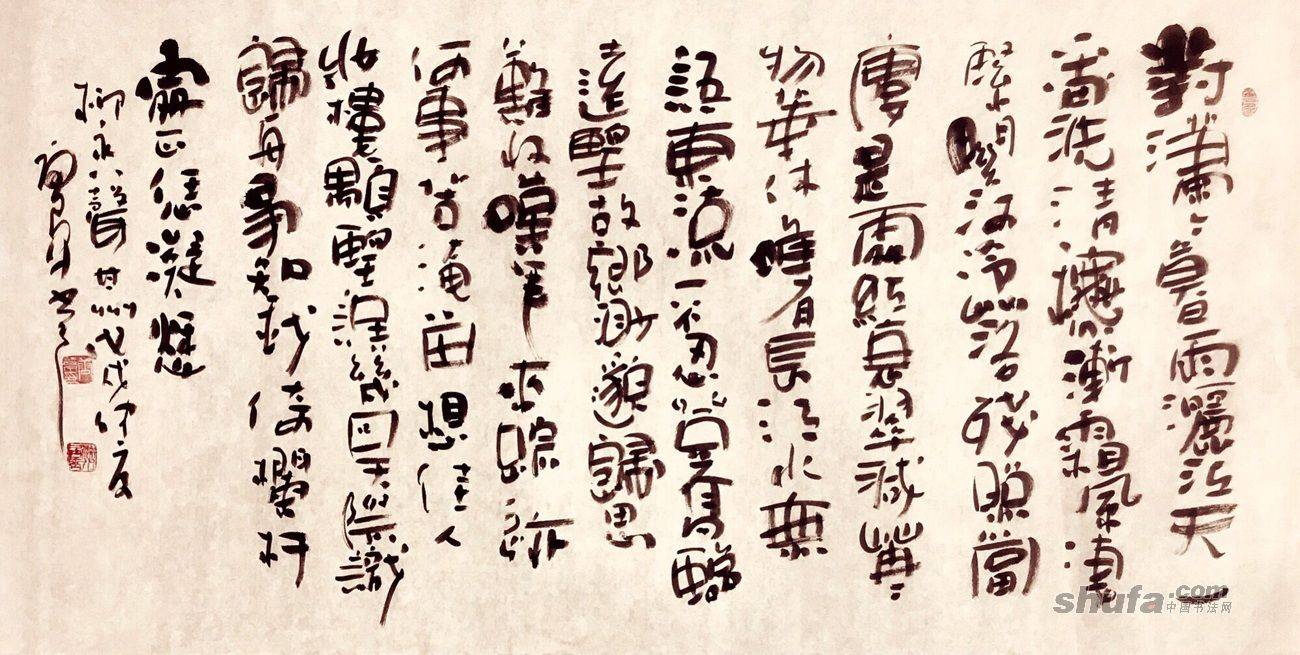 對瀟〻暮雨灑江天一
番洗清龝漸霜風凄
緊關河冷落殘照當
樓是處紅衰翠減苒〻
物華休惟有長江水無
語東流不忍登高臨
遠望故鄉渺邈歸思
難收嘆年來蹤跡
何事苦淹留想佳人
妝樓顒望誤幾回天際識
歸舟爭知我倚欄杆
處正恁凝愁
柳永八聲甘州戊戌仲夏
書
shufa.com
中国书法网